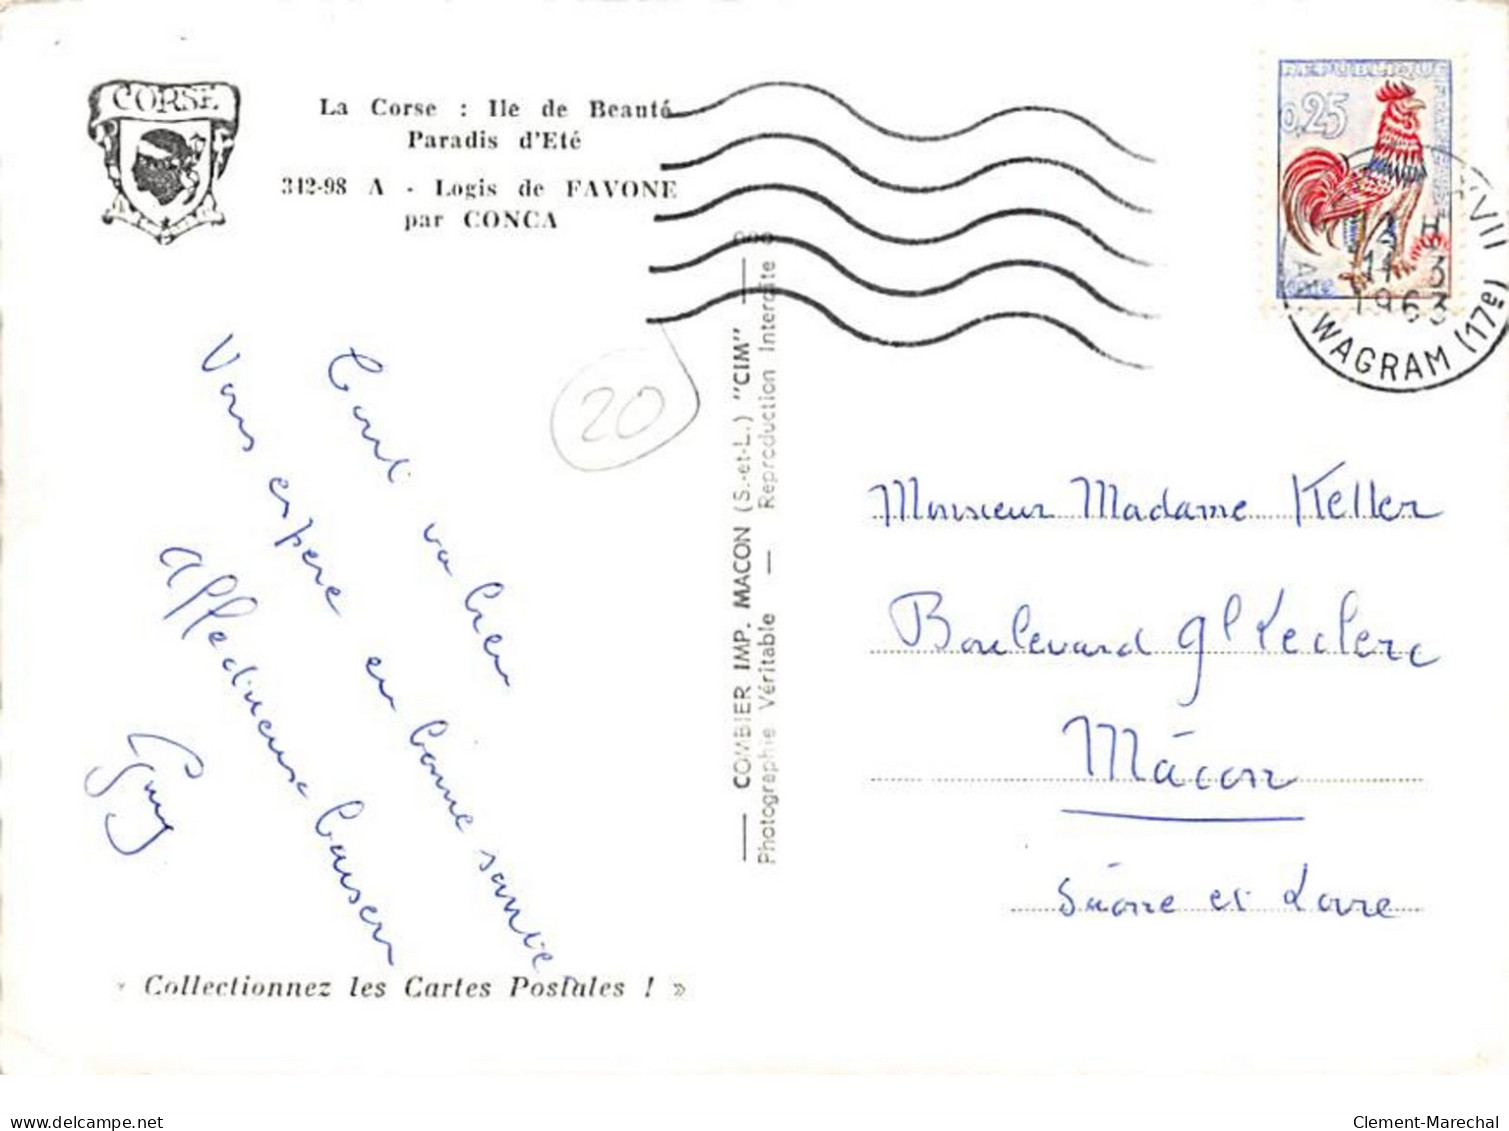 CORSE
La Corse : Ile de Beauté
Paradis d'Eté
312-98 A - Logis de FAVONE
par CONCA
REPUBLIQUE
0,25
1963
WAGRAM (17e)
20
Tout va bien
Vous espere en bonne sante
Affectueux baisers
Guy
COMBIER IMP. MACON (S.-et-L.) "CIM"
Photographie Véritable — Reproduction Interdite
Monsieur Madame Keller
Boulevard Gl Leclerc
Mâcon
Saône et Loire
« Collectionnez les Cartes Postales ! »
delcampe.net
Clement-Marechal